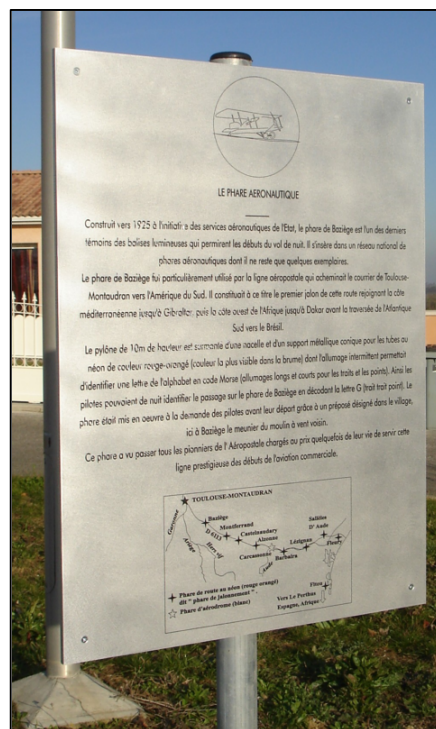 LE PHARE AERONAUTIQUE
Construit vers 1925 à l'initiative des services aéronautiques de l'Etat, le phare de Baziège est l'un des derniers
témoins des balises lumineuses qui permirent les débuts du vol de nuit. Il s'insère dans un réseau national de
phares aéronautiques dont il ne reste que quelques exemplaires.
Le phare de Baziège fut particulièrement utilisé par la ligne aéropostale qui acheminait le courrier de Toulouse-
Montaudran vers l'Amérique du Sud. Il constituait à ce titre le premier jalon de cette route rejoignant la côte
méditerranéenne jusqu'à Gibraltar, puis la côte ouest de l'Afrique jusqu'à Dakar avant la traversée de l'Atlantique
Sud vers le Brésil.
Le pylône de 10m de hauteur est surmonté d'une nacelle et d'un support métallique conique pour les tubes au
néon de couleur rouge-orangé (couleur la plus visible dans la brume) dont l'allumage intermittent permettait
d'identifier une lettre de l'alphabet en code Morse (allumages longs et courts pour les traits et les points). Ainsi les
pilotes pouvaient de nuit identifier le passage sur le phare de Baziège en décodant la lettre G (trait trait point). Le
phare était mis en oeuvre à la demande des pilotes avant leur départ grâce à un préposé désigné dans le village,
ici à Baziège le meunier du moulin à vent voisin.
Ce phare a vu passer tous les pionniers de l'Aéropostale chargés au prix quelquefois de leur vie de servir cette
ligne prestigieuse des débuts de l'aviation commerciale.
TOULOUSE-MONTAUDRAN
Garonne
Ariège
Baziège
D 6113
Hers rif
Montferrand
Castelnaudary
Alzonne
Carcassonne
Aude
Barbaira
Lézignan
Sallèles
D' Aude
Fleury
Fitou
Vers Le Perthus
Espagne, Afrique
Phare de route au néon (rouge orangé)
dit " phare de jalonnement ".
Phare d'aérodrome (blanc)